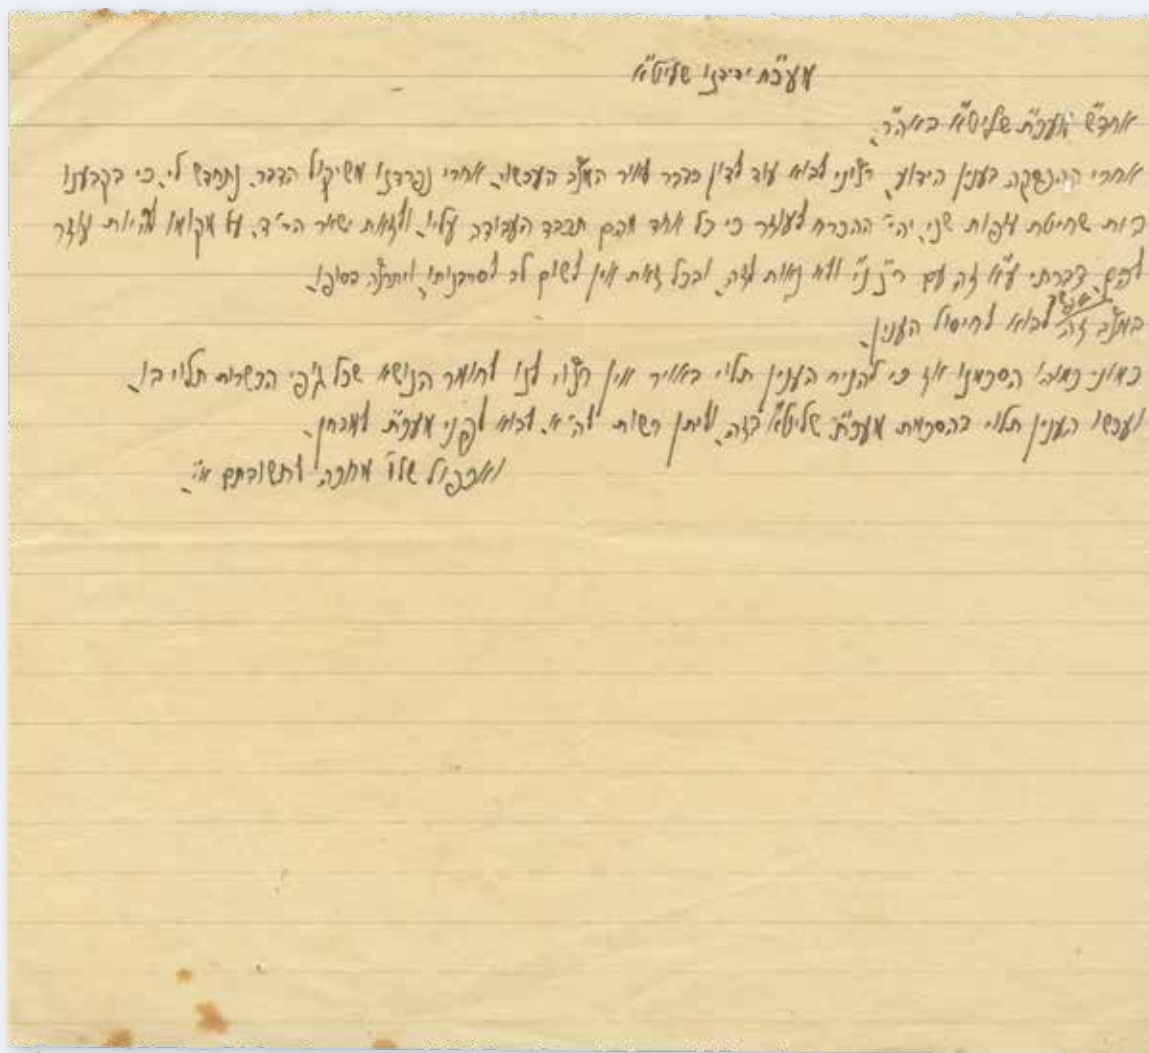 מעכ"ת ידידנו שליט"א
אחדש מעכ"ת שליט"א באה"ר.
אחרי ההפסקה בענין הידוע, רצוני לבוא עוד לדון בדבר לאור המצב העכשוי, אחרי נפרדנו משיקול הדבר, נתחדש לי, כי בקבענו
בית שחיטת עופות שני, יהי' ההכרח לעוזר כי כל אחד מהם תכבד העבודה עליו, ולזאת ישאר הר"ד, על מקומו להיות עוזר
להם, דברתי ע"א זה עם ר"נ נ"י ולא נאות לזה, ובכל זאת אין לשום לב לסרבנותו, ויתרצה בסופו.
במצב זה לבוא לחיסול הענין.
כמוני כמוהו הסכמנו אז כי להניח הענין תלוי באויר אין רצוי לנו לחומר הנושא שכל גופי הכשרות תלוי בו.
ועכשו הענין תלוי בהסכמת מעכ"ת שליט"א בזה, וליתן רשות לה"א, לבוא לפני מעכ"ת למבחן.
ואכפול שלו' מחכה לתשובתם א"י.